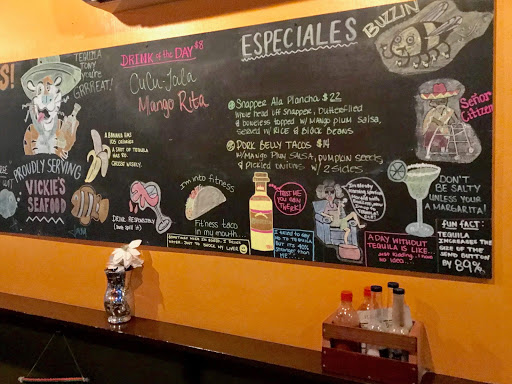 S!
TEQUILA
TONY
you're
GRRREAT!
PROUDLY SERVING
VICKIE'S
SEAFOOD
A BANANA HAS
105 CALORIES
A SHOT OF TEQUILA
HAS 80.
CHOOSE WISELY.
DRINK RESPONSIBLY
(Don't Spill It)
DRINK OF THE DAY $8
CuCu-Jala
Mango Rita
I'm into fitness
Fitness taco
in my mouth...
ESPECIALES
Snapper Ala Plancha $22
Whole head off Snapper, Butterflied
& Boneless topped w/ Mango Plum Salsa,
Served w/ RICE & Black Beans
PORK BELLY TACOS $14
w/ Mango Plum Salsa, Pumpkin Seeds
& Pickled Onions w/ 2 sides
TRUST ME
YOU CAN
I tried to say
NO TO TEQUILA
BUT ITS 40%
stronger than
ME
A DAY WITHOUT
TEQUILA IS LIKE...
Just Kidding.. I have
no idea...
BUZZIN
SEÑOR
CITIZEN
DON'T
BE SALTY
UNLESS YOUR
A MARGARITA!
FUN FACT:
TEQUILA
INCREASES THE
SIZE OF THE
SEND BUTTON
BY 89%